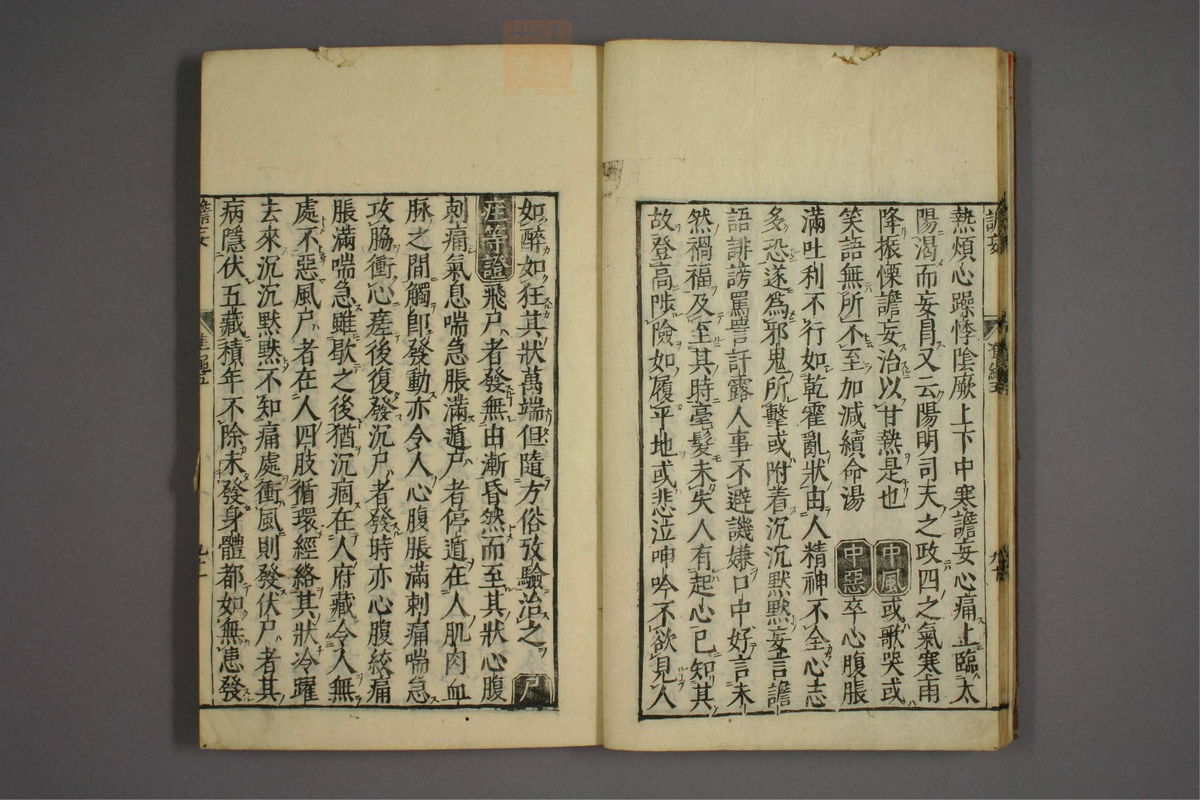 熱煩心躁悸陰厥上下中寒譫妄心痛上臨太
陽渴而妄冒又云陽明司天之政四之氣寒雨
降振慄譫妄治以甘熱是也 中風 或歌哭或
笑語無所不至加減續命湯 中惡 卒心腹脹
滿吐利不行如乾霍亂狀由人精神不全心志
多恐遂為邪鬼所擊或附着沉沉默默妄言譫
語誹謗罵詈訐露人事不避譏嫌口中好言未
然禍福及至其時毫髮未失人有起心已知其
故登高陟險如履平地或悲泣呻吟不欲見人
如醉如狂其狀萬端但隨方俗攷驗治之 尸
疰等證 飛尸者發無由漸昏然而至其狀心腹
刺痛氣息喘急脹滿遁尸者停遁在人肌肉血
脉之間觸即發動亦令人心腹脹滿刺痛喘急
攻脇衝心瘥後復發沉尸者發時亦心腹絞痛
脹滿喘急雖歇之後猶沉痼在人府藏令人無
處不惡風尸者在人四肢循環經絡其狀冷躍
去來沉沉默默不知痛處衝風則發伏尸者其
病隱伏五藏積年不除未發身體都如無患發